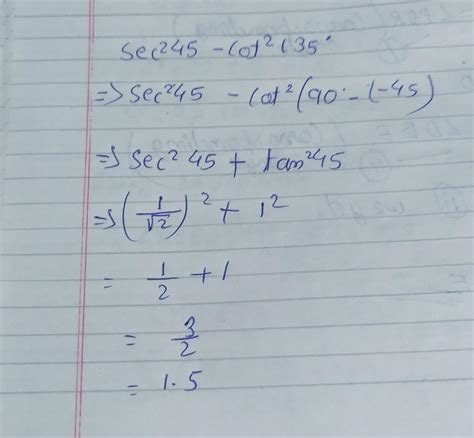 sec²45 - cot²135°
=> sec²45 - cot²(90 - (-45)
=> sec² 45 + tan²45
=> (1/√2)² + 1²
= 1/2 + 1
= 3/2
= 1.5